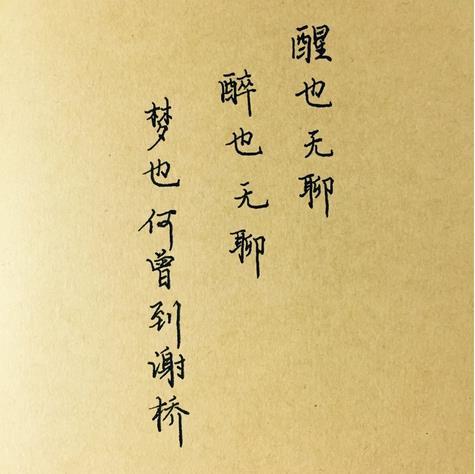 醒也无聊
醉也无聊
梦也何曾到谢桥